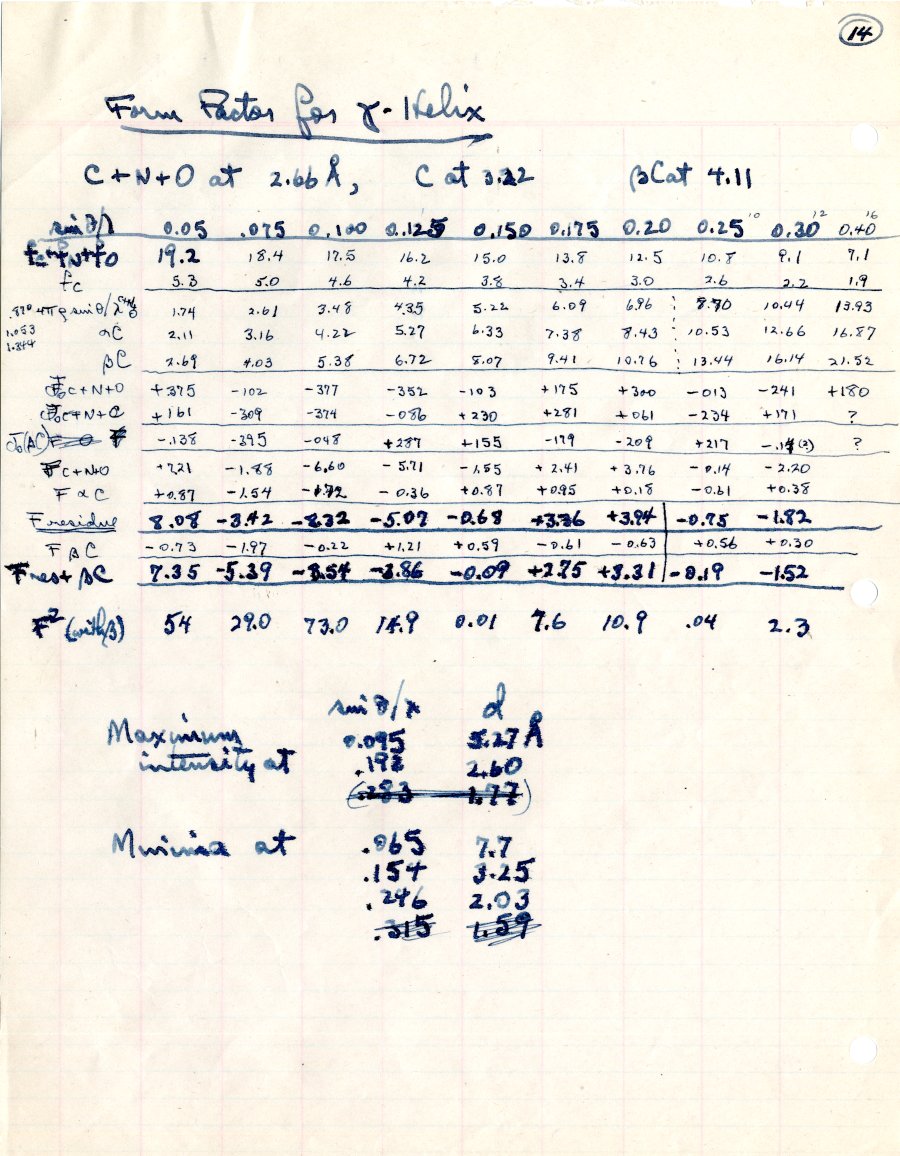 14
Form Factor for γ-Helix
C+N+O at 2.66 Å, C at 3.22 βC at 4.11
sin θ/λ 0.05 .075 0.100 0.125 0.150 0.175 0.20 0.25 10 0.30 12 0.40 16
fC+fN+fO 19.2 18.4 17.5 16.2 15.0 13.8 12.5 10.8 9.1 7.1
fC 5.3 5.0 4.6 4.2 3.8 3.4 3.0 2.6 2.2 1.9
4πρ sin θ/λ 1.74 2.61 3.48 4.35 5.22 6.09 6.96 8.70 10.44 13.93
1.053 αC 2.11 3.16 4.22 5.27 6.33 7.38 8.43 10.53 12.66 16.87
1.344
βC 2.69 4.03 5.38 6.72 8.07 9.41 10.76 13.44 16.14 21.52
C+N+O +375 -102 -377 -352 -103 +175 +300 -013 -241 +180
C+N+C +161 -309 -374 -086 +230 +281 +061 -234 +171 ?
-.138 -395 -048 +287 +155 -179 -209 +217 -.14(2) ?
F C+N+O +7.21 -1.88 -6.60 -5.71 -1.55 +2.41 +3.76 -0.14 -2.20
F αC +0.87 -1.54 -1.72 -0.36 +0.87 +0.95 +0.18 -0.61 +0.38
F residue 8.08 -3.42 -8.32 -5.07 -0.68 +3.36 +3.94 -0.75 -1.82
F βC -0.73 -1.97 -0.22 +1.21 +0.59 -0.61 -0.63 +0.56 +0.30
F res+βC 7.35 -5.39 -8.54 -3.86 -0.09 +2.75 +3.31 -0.19 -1.52
F² (with β) 54 29.0 73.0 14.9 0.01 7.6 10.9 .04 2.3
sin θ/λ d
Maximum 0.095 5.27 Å
intensity at .192 2.60
(.283 1.77)
Minima at .065 7.7
.154 3.25
.246 2.03
.315 1.59